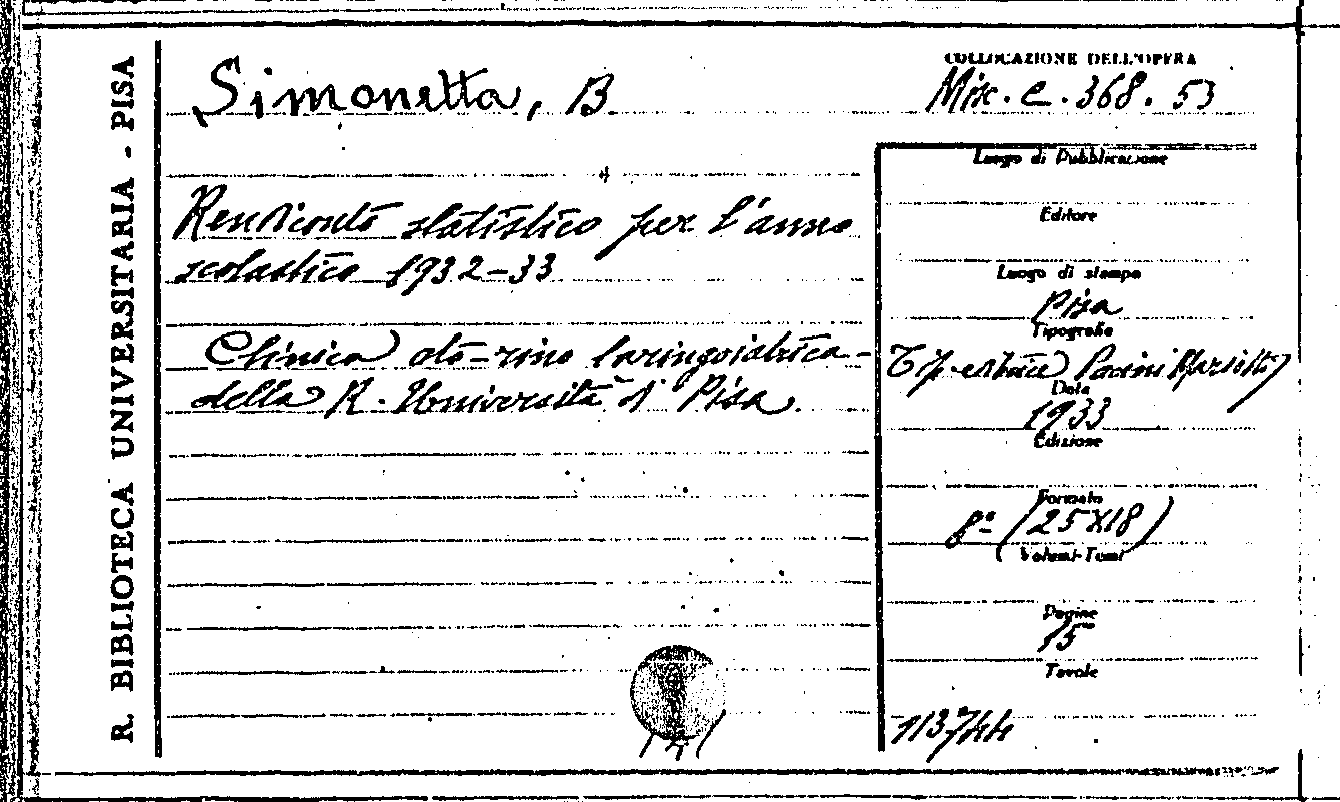 R. BIBLIOTECA UNIVERSITARIA - PISA
Simonetta, B
COLLOCAZIONE DELL'OPERA
Misc. e. 368. 53
Rendiconto statistico per l'anno
scolastico 1932-33
Clinica oto-rino laringoiatrica
della R. Università di Pisa
Luogo di Pubblicazione
Editore
Luogo di stampa
Pisa
Tipografia
Pacini Mariotti
Data
1933
Edizione
Formato
8º (25X18)
Volumi-Tomi
Pagine
15
Tavole
113744